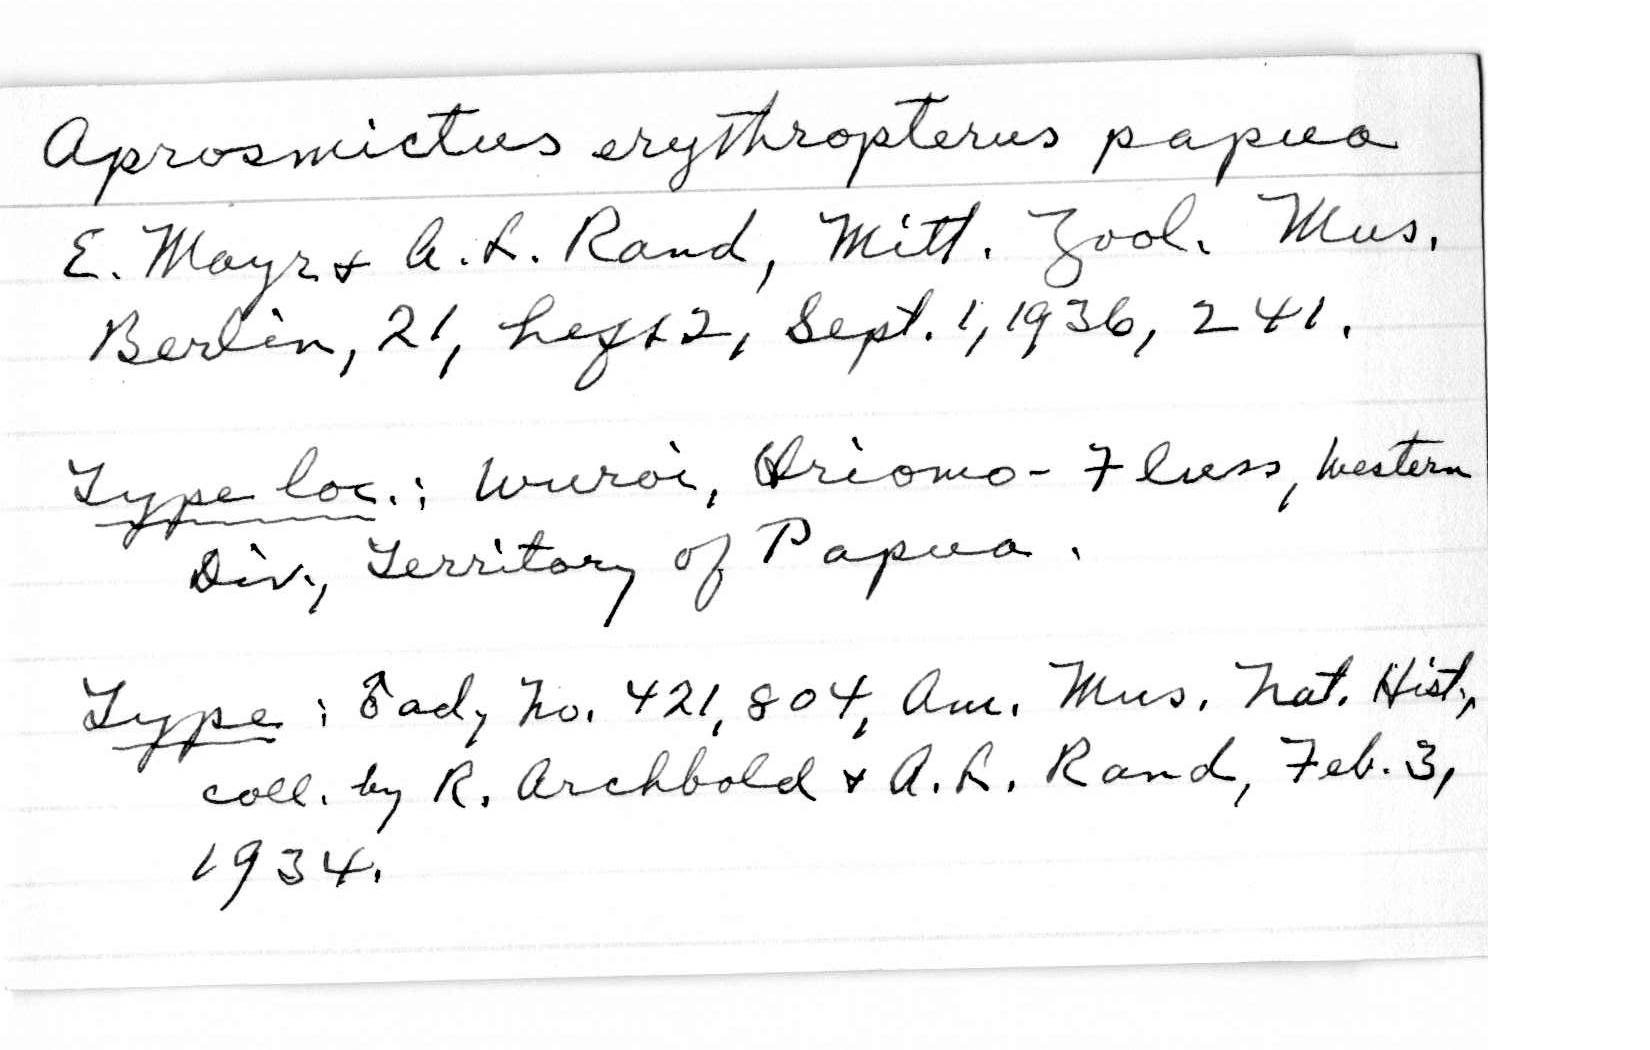 Aprosmictus erythropterus papua
E. Mayr & A. L. Rand, Mitt. Zool. Mus.
Berlin, 21, heft 2, Sept. 1, 1936, 241.
Type loc.: Wuroi, Oriomo-Fluss, Western
Div., Territory of Papua.
Type: ♂ ad, No. 421,804, Am. Mus. Nat. Hist.,
coll. by R. Archbold & A. L. Rand, Feb. 3,
1934.